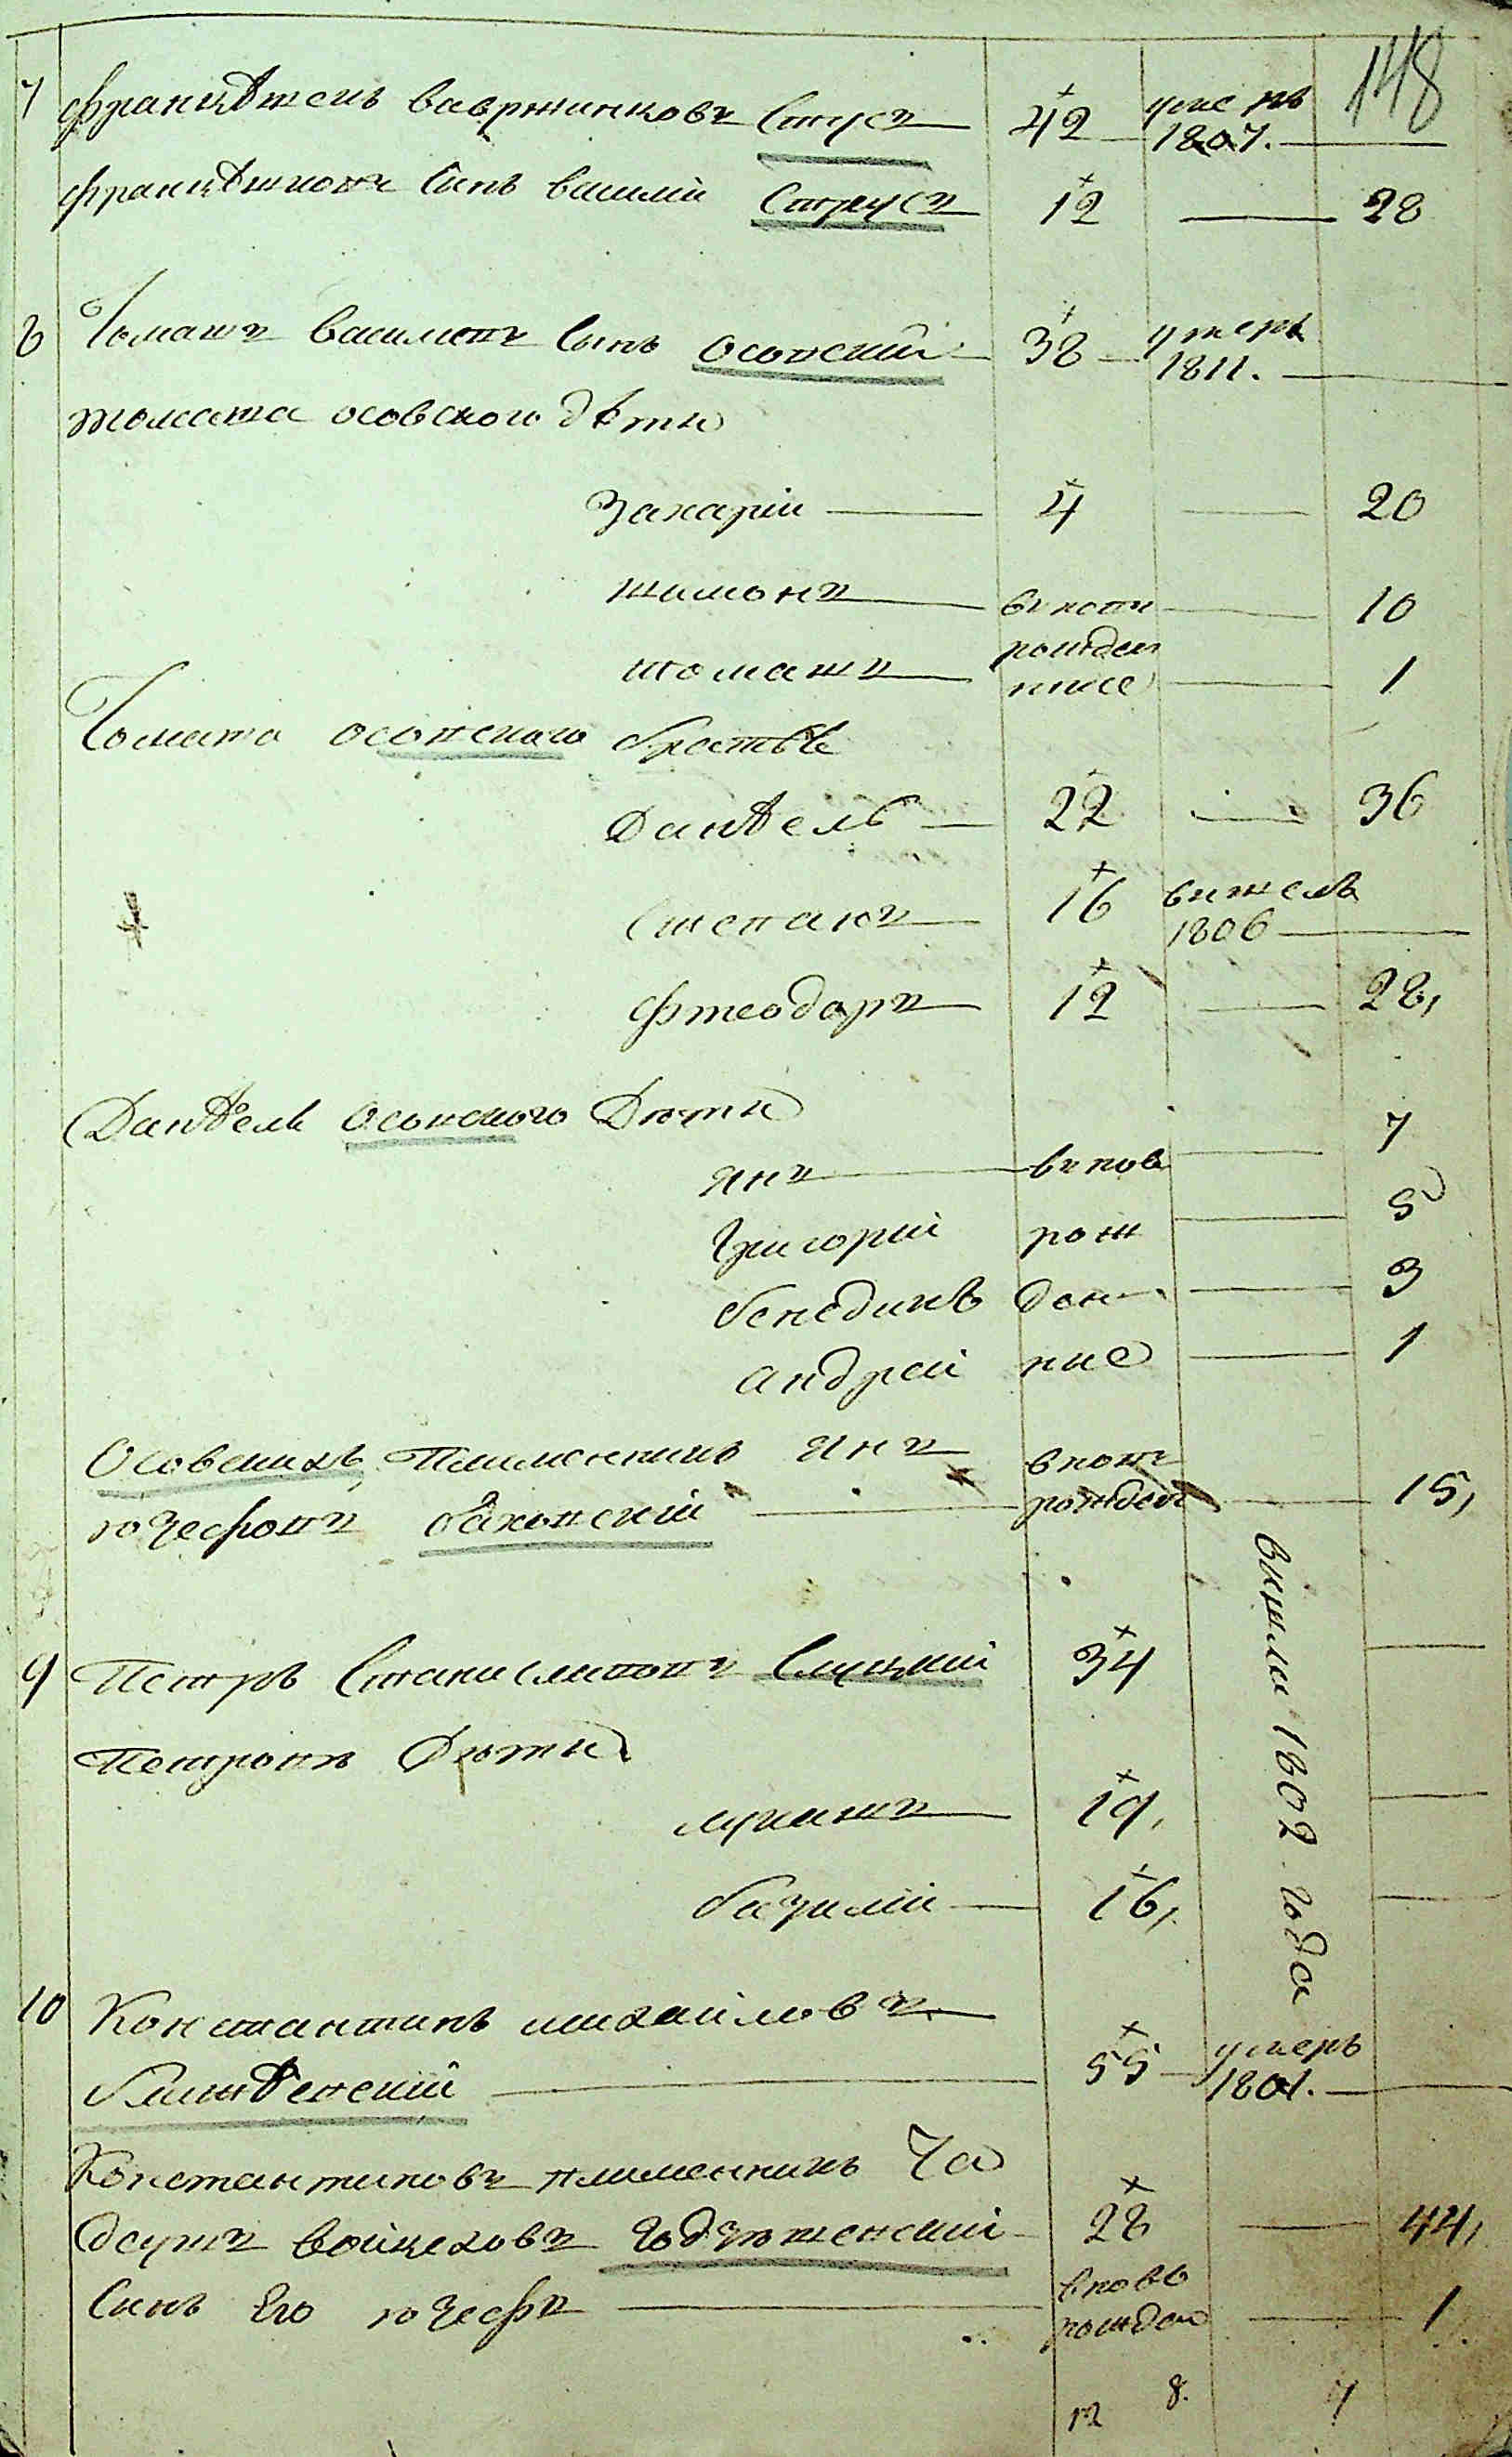 148
7 Францѣшекъ Вавржинковъ Струсъ 42 умеръ 1807.
Францѣшкова Сынъ Василій Струсъ 12 — 28
8 Томашъ Васильевъ Сынъ Осовскій 38 умеръ 1811.
Томаша Осовского дѣти
Захарій — 4 — 20
Шимонъ — вновъ — 10
Томашъ — рожден ные — 1
Томаша Осовского братья
Данѣель — 22 — 36
Степанъ — 16 вишелъ 1806
Фтеодоръ — 12 — 28,
Данѣеля Осовского Дѣти
Янъ — вновь — 7
Григорій рож — 5
Бенедиктъ ден — 3
Андрей ные — 1
Осовскихъ Племенникъ Янъ вновъ
Юзефовъ рожден — 15,
9 Петръ Станиславовъ Слуцкій 34
вишли 1802 года
Петровы Дѣти
Лукашъ — 19,
Базилій — 16,
10 Константинъ Михайловъ
55 умеръ 1801.
Константиновъ племенникъ Та
деушъ Войцеховъ 28 — 44,
Сынъ Его Юзефъ — вновь рожден — 1
12 8. 9